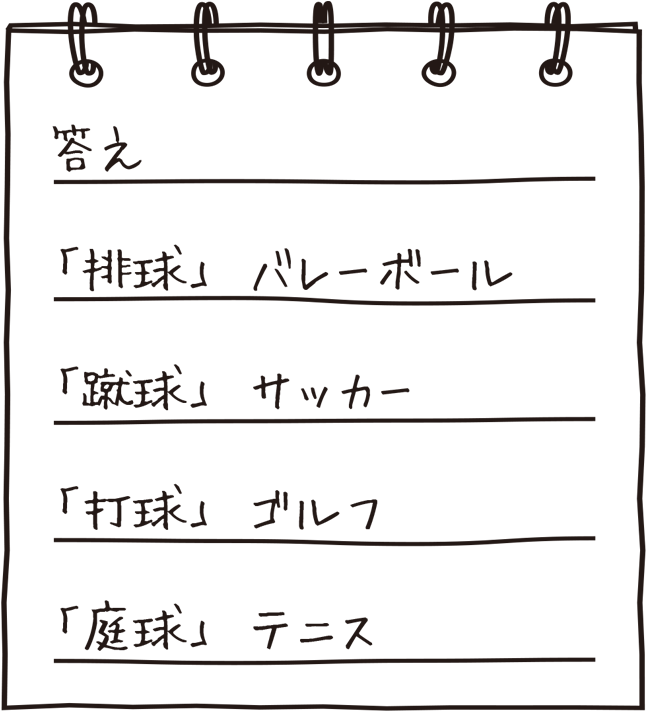 答え
「排球」 バレーボール
「蹴球」 サッカー
「打球」 ゴルフ
「庭球」 テニス